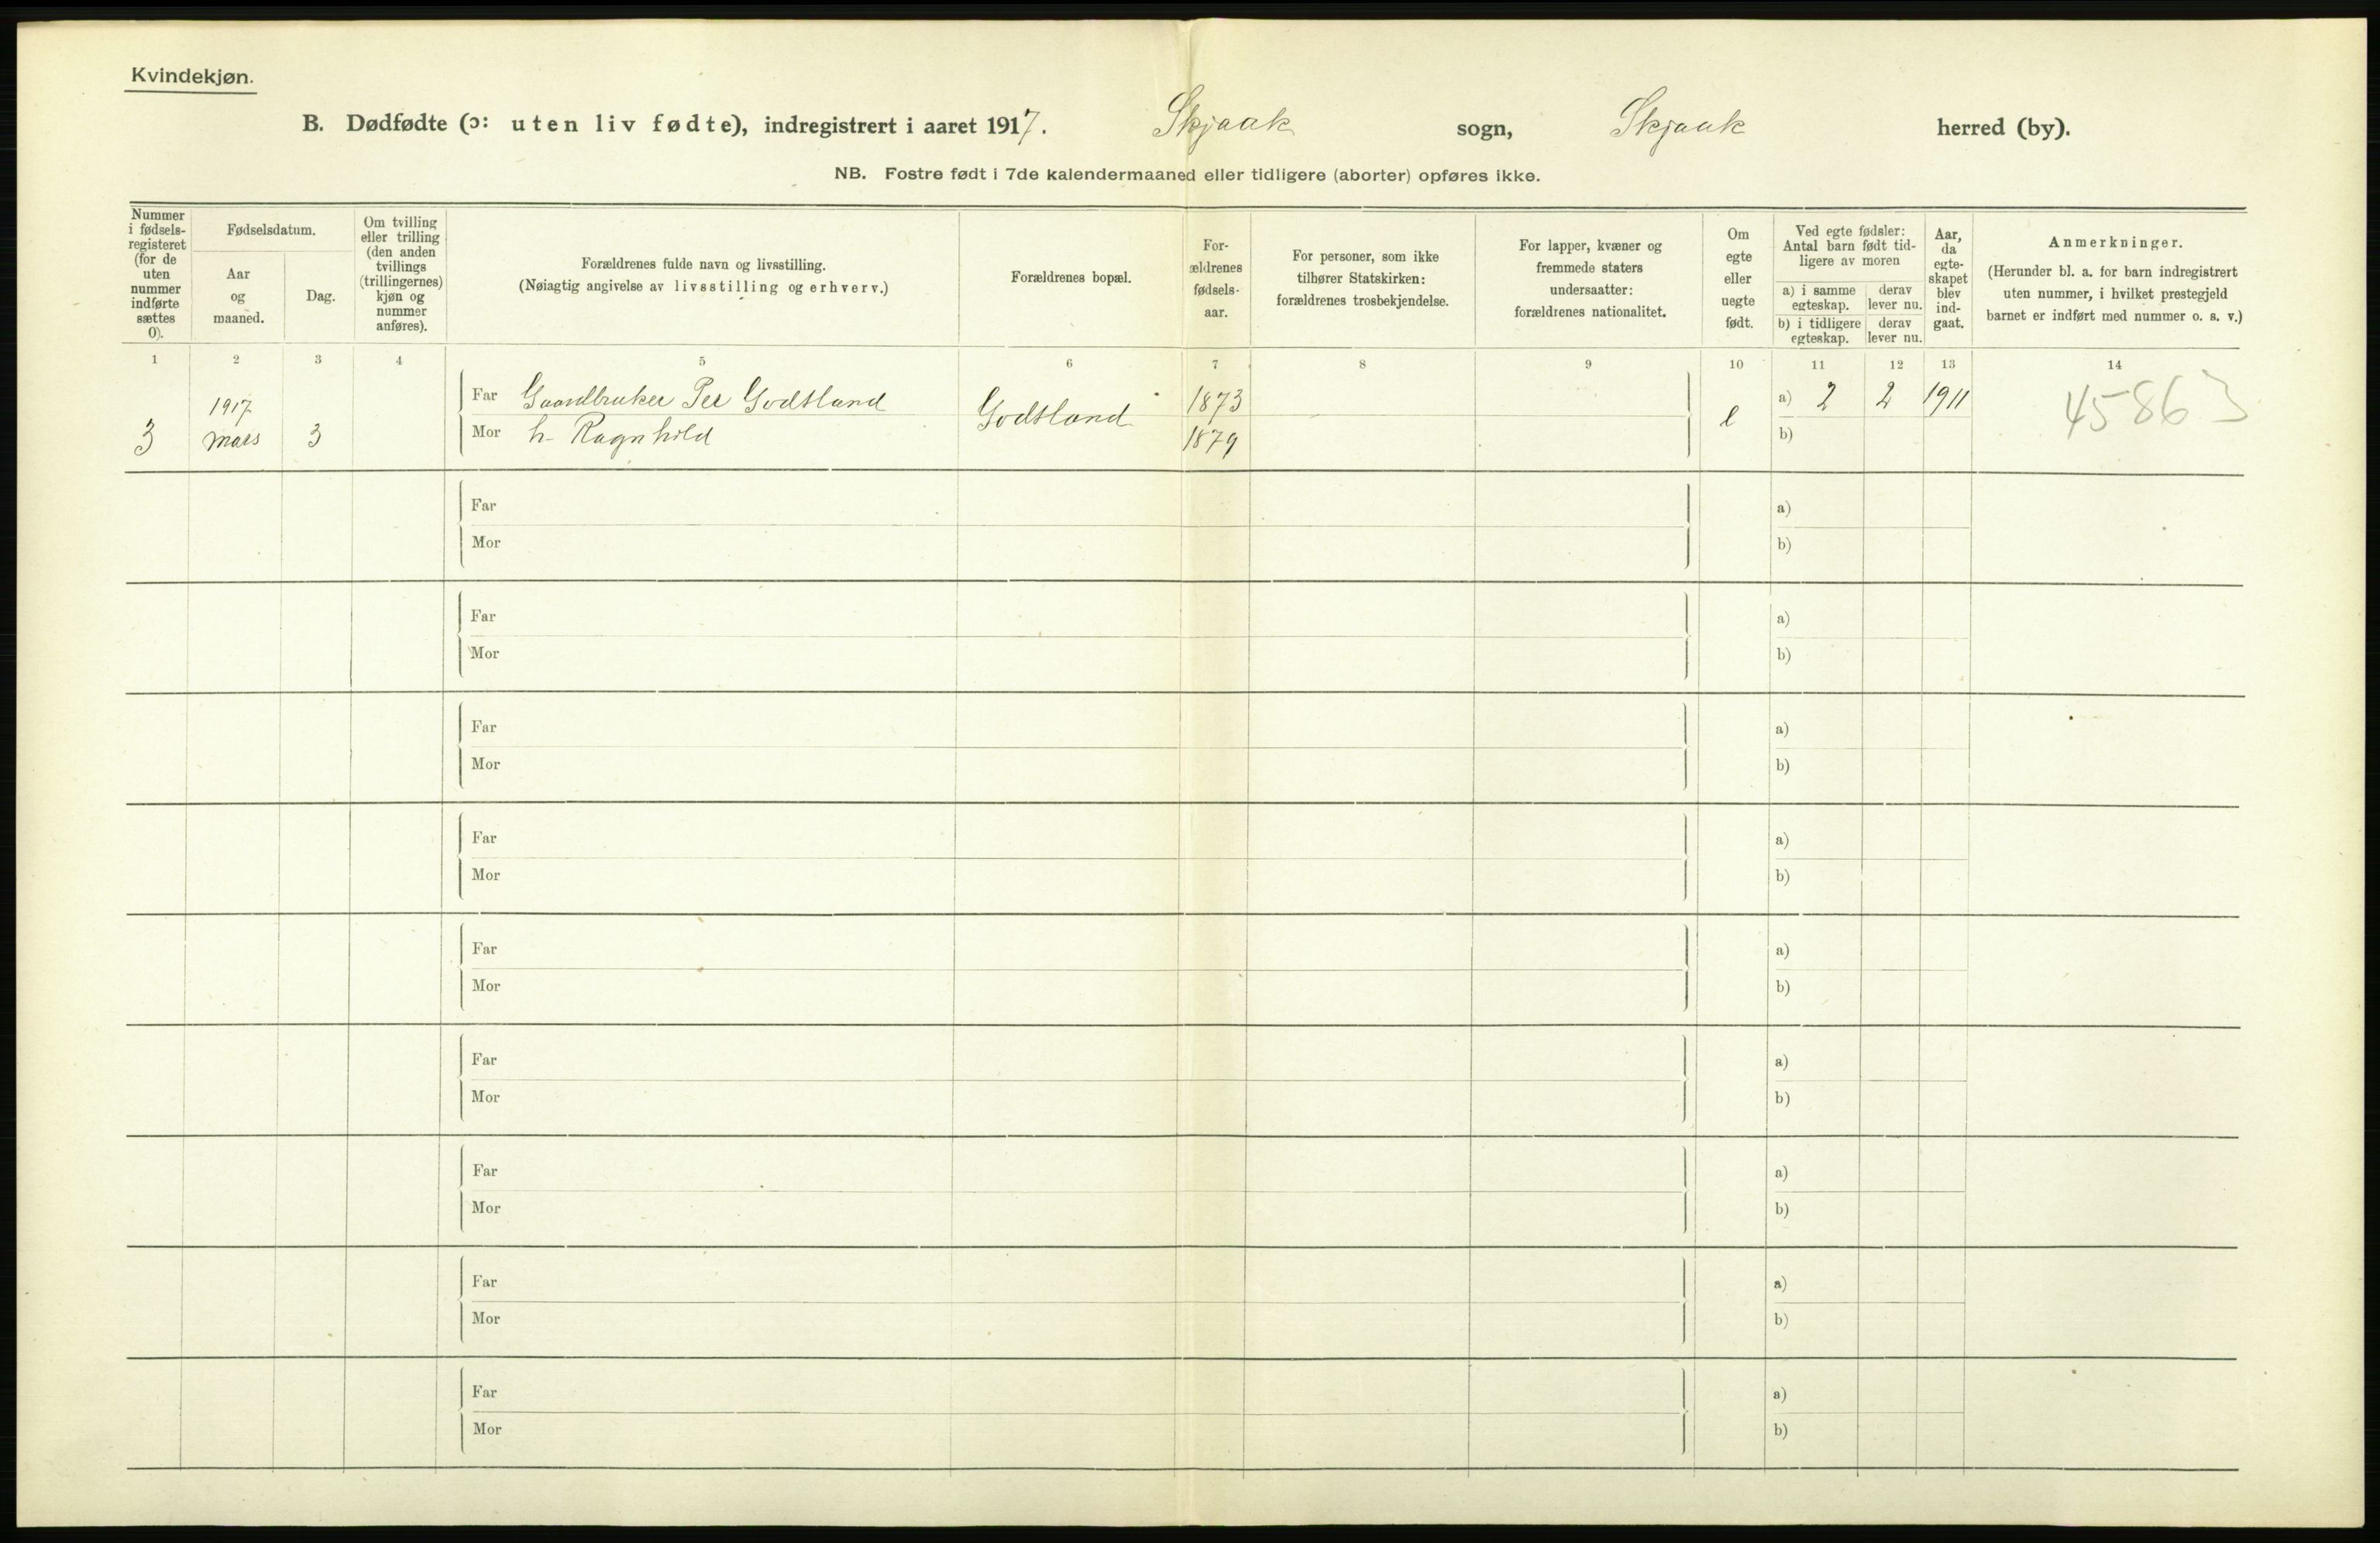 Kvindekjøn.
B. Dødfødte (ɔ: uten liv fødte), indregistrert i aaret 1917. Skjaak sogn, Skjaak herred (by).
NB. Fostre født i 7de kalendermaaned eller tidligere (aborter) opføres ikke.
Nummer i fødsels-registeret (for de uten nummer indførte sættes 0).
Fødselsdatum.
Aar og maaned.
Dag.
Om tvilling eller trilling (den anden tvillings (trillingernes) kjøn og nummer anføres).
Forældrenes fulde navn og livsstilling.
(Nøiagtig angivelse av livsstilling og erhverv.)
Forældrenes bopæl.
For-ældrenes fødsels-aar.
For personer, som ikke tilhører Statskirken: forældrenes trosbekjendelse.
For lapper, kvæner og fremmede staters undersaatter: forældrenes nationalitet.
Om egte eller uegte født.
Ved egte fødsler: Antal barn født tid-ligere av moren
a) i samme egteskap.
derav lever nu.
b) i tidligere egteskap.
derav lever nu.
Aar, da egte-skapet blev ind-gaat.
Anmerkninger.
(Herunder bl. a. for barn indregistrert uten nummer, i hvilket prestegjeld barnet er indført med nummer o. s. v.)
1 2 3 4 5 6 7 8 9 10 11 12 13 14
3 1917 mars 3
Far Gaardbruker Per Godtland Godtland 1873 e a) 2 2 1911 45863
Mor h. Ragnhild 1879 b)
Far a)
Mor b)
Far a)
Mor b)
Far a)
Mor b)
Far a)
Mor b)
Far a)
Mor b)
Far a)
Mor b)
Far a)
Mor b)
Far a)
Mor b)
Far a)
Mor b)